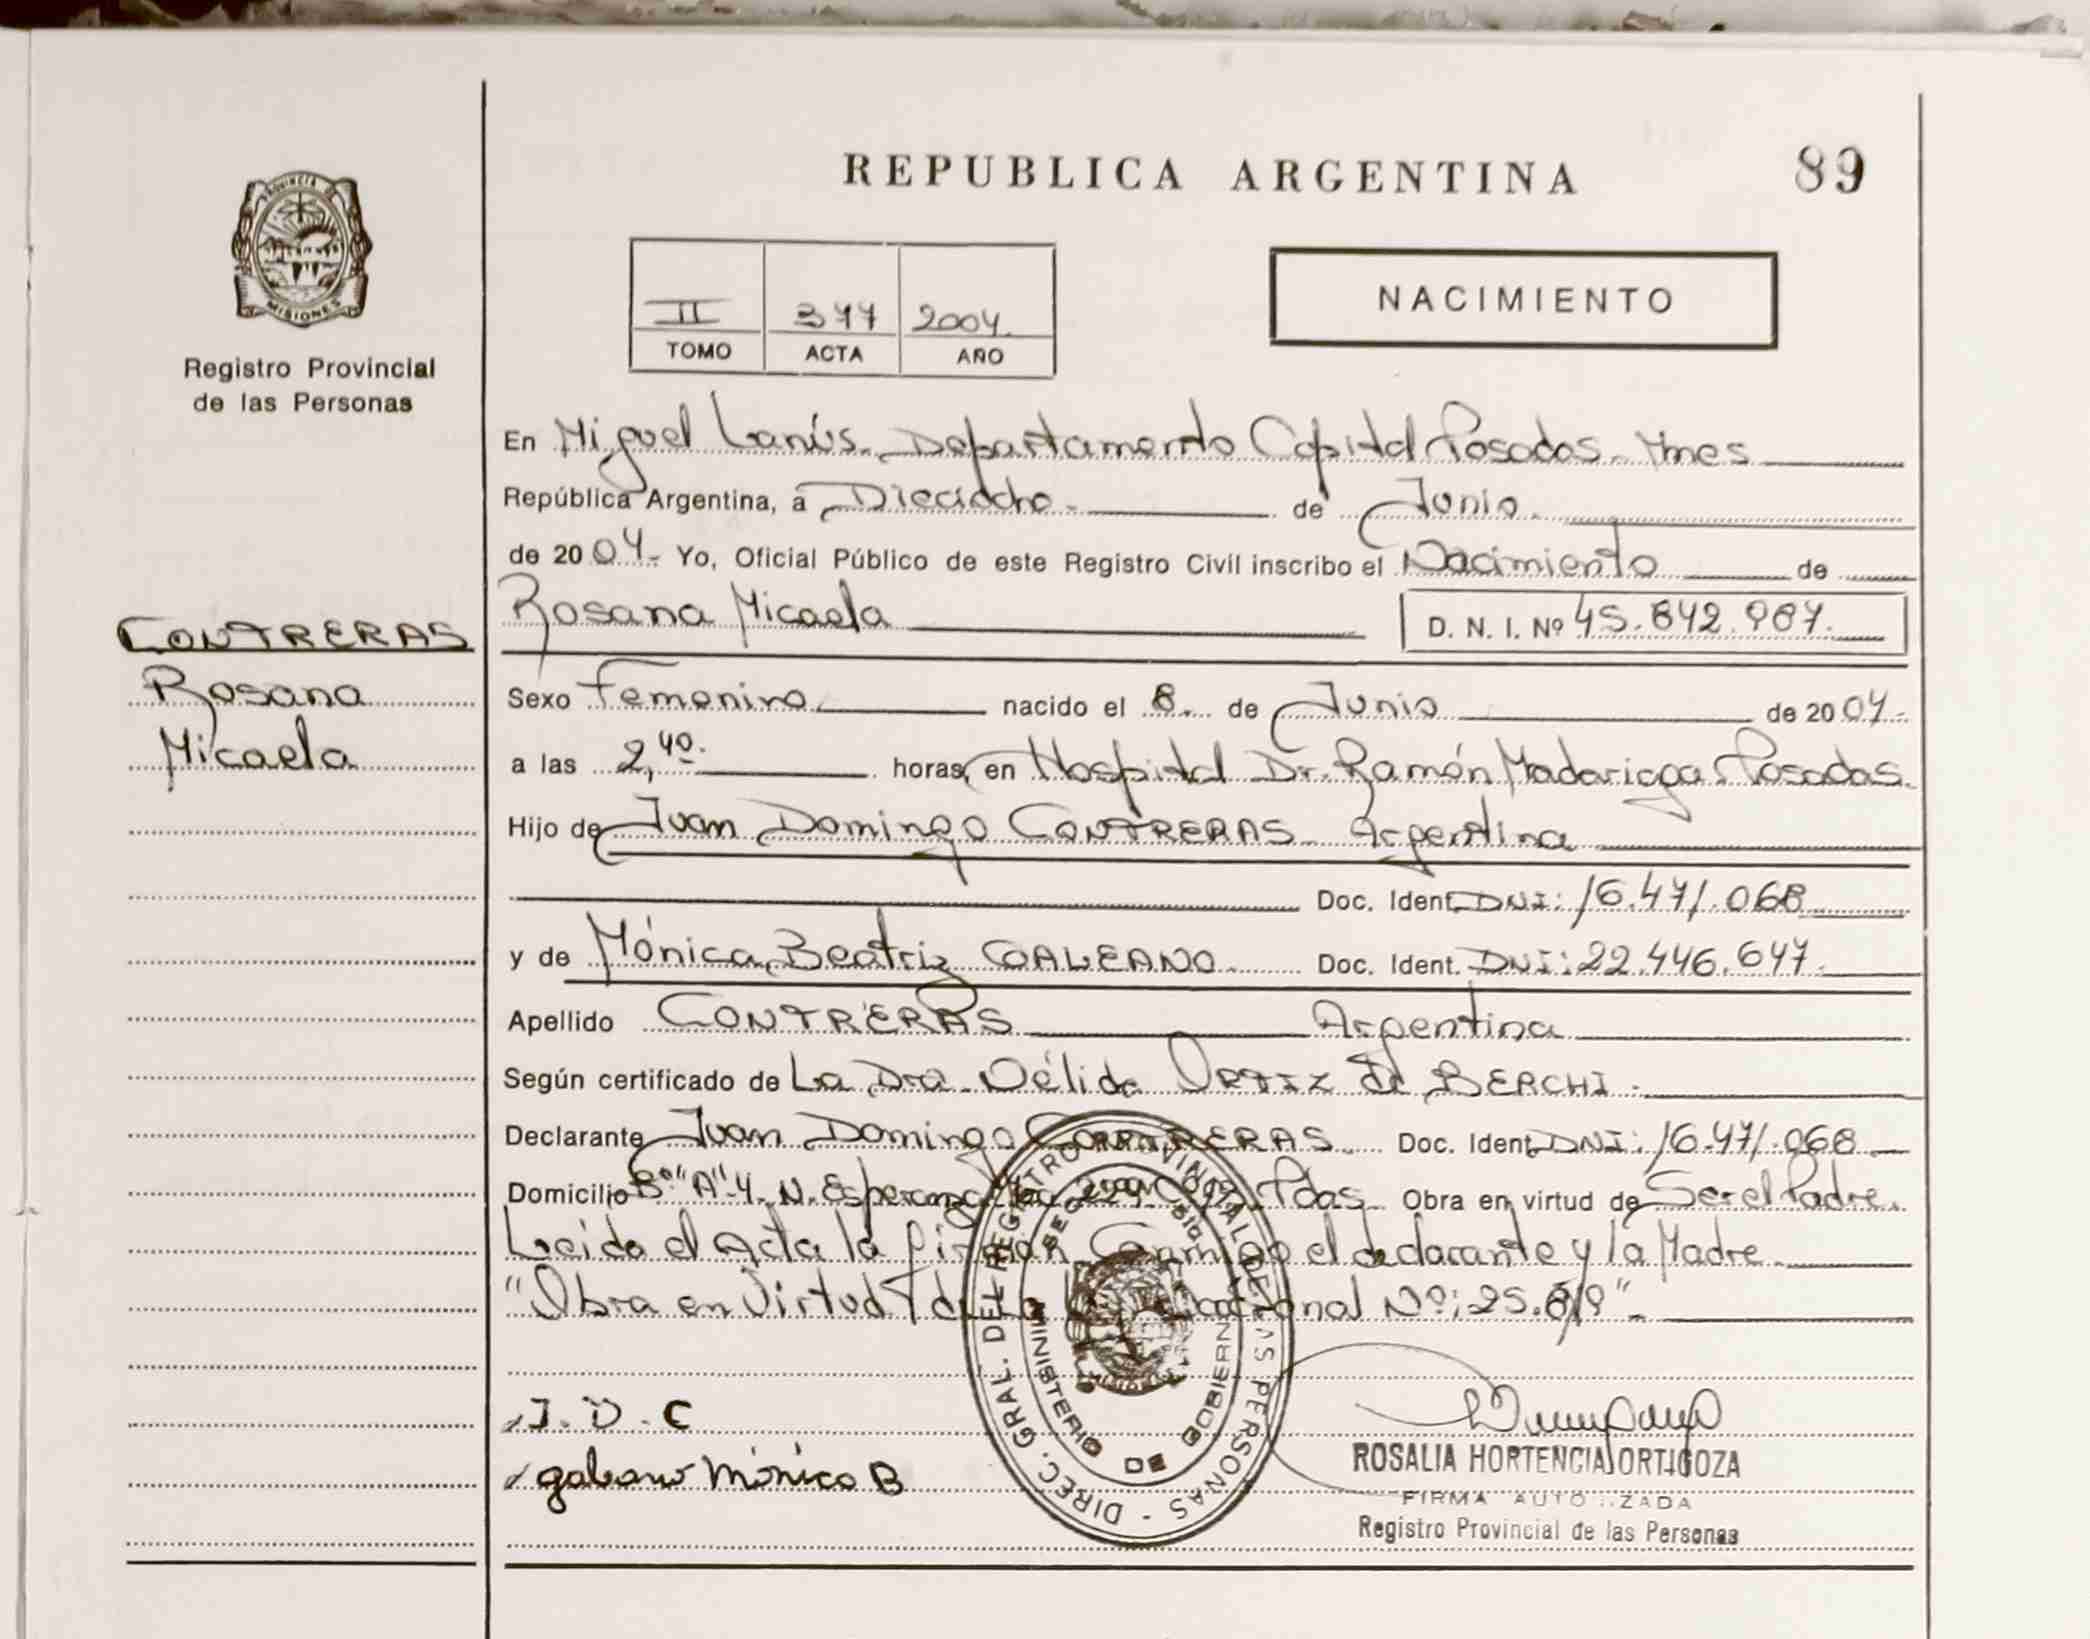 REPUBLICA ARGENTINA
89
PROVINCIA DE
MISIONES
Registro Provincial
de las Personas
II 377 2004.
TOMO ACTA AÑO
NACIMIENTO
En Miguel Lanús. Departamento Capital Posadas. Mnes
República Argentina, a Dieciocho de Junio.
de 2004. Yo, Oficial Público de este Registro Civil inscribo el Nacimiento de
Rosana Micaela D. N. I. Nº 45.842.987.
CONTRERAS
Rosana
Micaela
Sexo Femenino nacido el 8. de Junio de 2004.
a las 2,40. horas, en Hospital Dr. Ramón Madariaga Posadas.
Hijo de Juan Domingo CONTRERAS Argentina
Doc. Ident. DNI: 16.471.068
y de Mónica Beatriz GALEANO. Doc. Ident. DNI: 22.446.647.
Apellido CONTRERAS Argentina
Según certificado de La Dra. Nélida ORTIZ de BERCHI.
Declarante Juan Domingo CONTRERAS Doc. Ident. DNI: 16.471.068
Domicilio Bº "A"4. N. Esperanza Pdas. Obra en virtud de Ser el Padre.
Leida el Acta la firman Conmigo el declarante y la Madre.
"Obra en Virtud de la Ley Nacional Nº: 25.819"
J. D. C
galeano Mónica B
DIREC. GRAL. DEL REGISTRO PROVINCIAL DE LAS PERSONAS
MINISTERIO DE GOBIERNO
ROSALIA HORTENCIA ORTIGOZA
FIRMA AUTORIZADA
Registro Provincial de las Personas